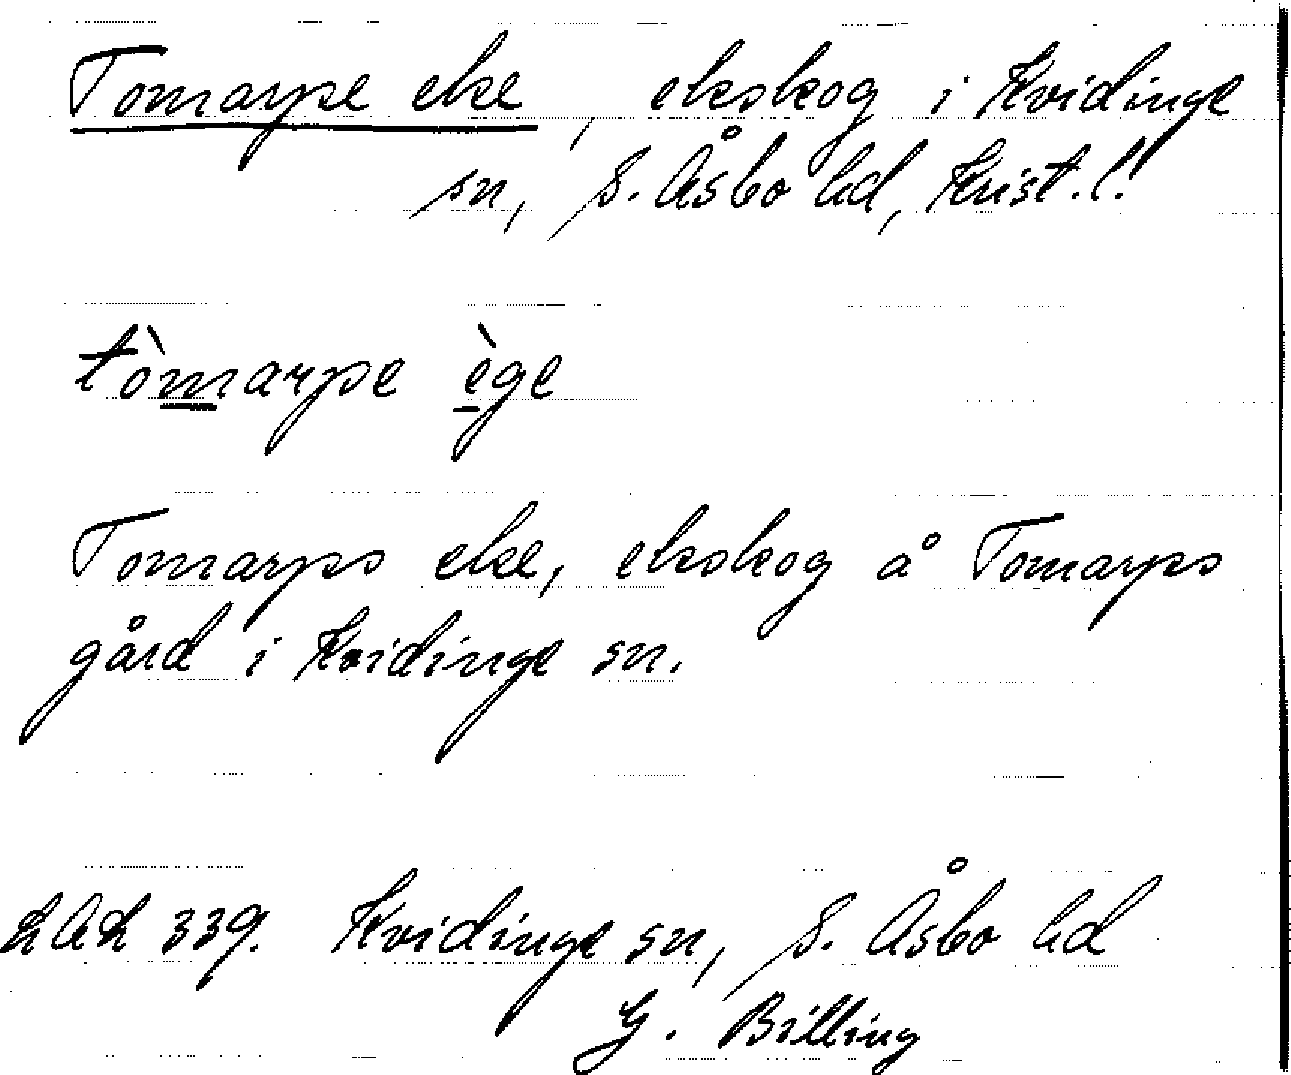 Tomarpe eke, ekskog i Kvidinge
sn, S. Åsbo hd, Krist. l.!
tòmarpe ège
Tomarps eke, ekskog å Tomarps
gård i Kvidinge sn.
LAL 339. Kvidinge sn, S. Åsbo hd
G. Billing